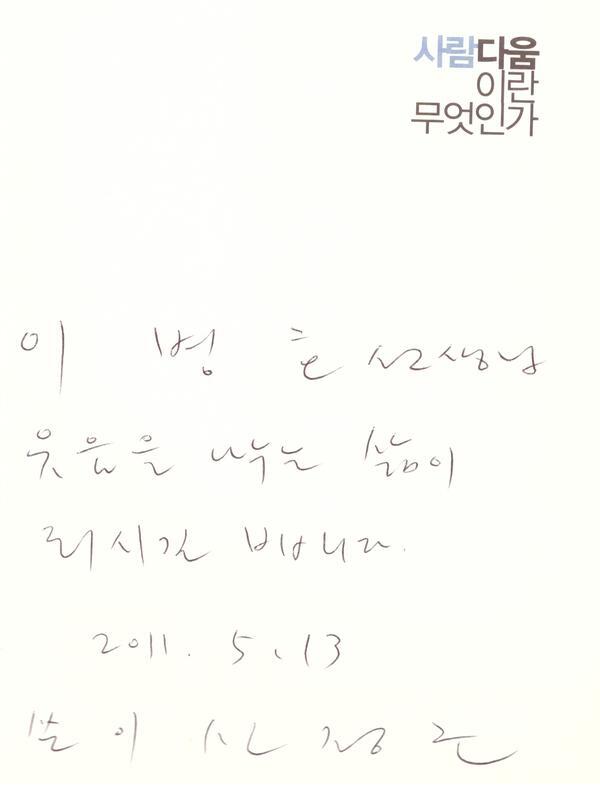 사람다움
이란
무엇인가
이 병 훈 선생님
웃음을 나누는 삶이
되시길 빕니다.
2011. 5. 13
쓴이 신 정 근